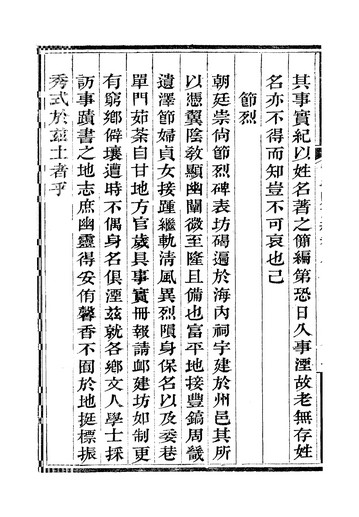 其事實紀以姓名著之簡編第恐日久事湮故老無存姓
名亦不得而知豈不可哀也已
節烈
朝廷崇尚節烈碑表坊碣遍於海內祠宇建於州邑其所
以憑翼陰教顯幽闡微至隆且備也富平地接豐鎬周畿
遺澤節婦貞女接踵繼軌清風異烈隕身保名以及委巷
單門茹荼自甘地方官歲具事實冊報請邺建坊如制更
有窮鄉僻壤遭時不偶身名俱湮茲就各鄉文人學士採
訪事蹟書之地志庶幽靈得妥侑馨香不固於地挺標振
秀式於茲土者乎